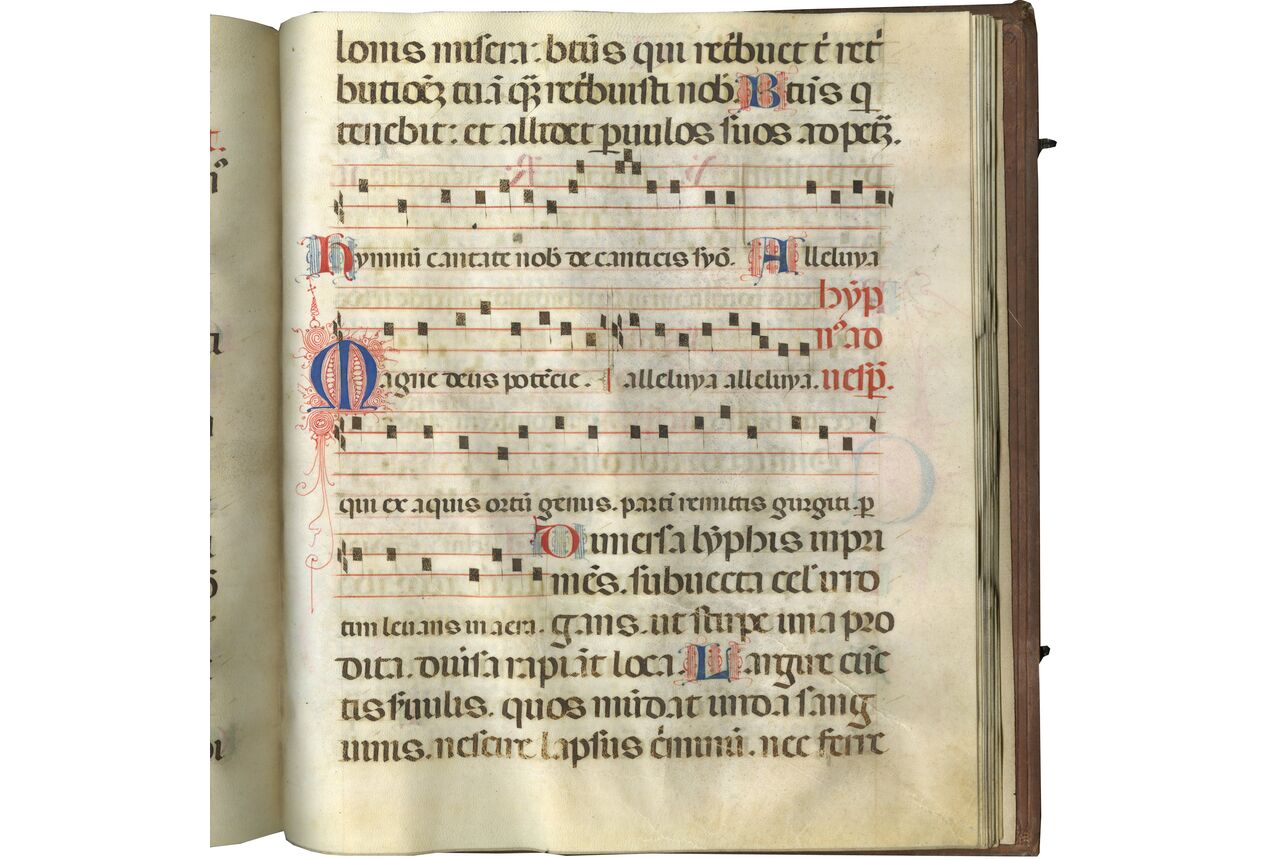 lonis misera: btūs qui ret͛buet t͛ ret͛
butiōeʒ tuā q̄ʒ ret͛buisti nob̄. Btūs q̄
tenebit: et allidet puulos suos ad petʒ.
hymnū cantate nob̄ de canticis syō. Alleluya
hȳp
nᵒ ad
Magne deus potēcie. alleluya alleluya. uesp̄.
qui ex aquis ortū genus. partī remittis gurgiti. p
Dimersa lȳphis inpri
mēs. subuecta cel irro
tim leuans in aera. gans. ut stirpe una pro
dita. diuersa rapiāt loca. Largire cūc
tis s͛uulis. quos mūdat unda sang
uinis. nescire lapsus c͛minū. nec ferre